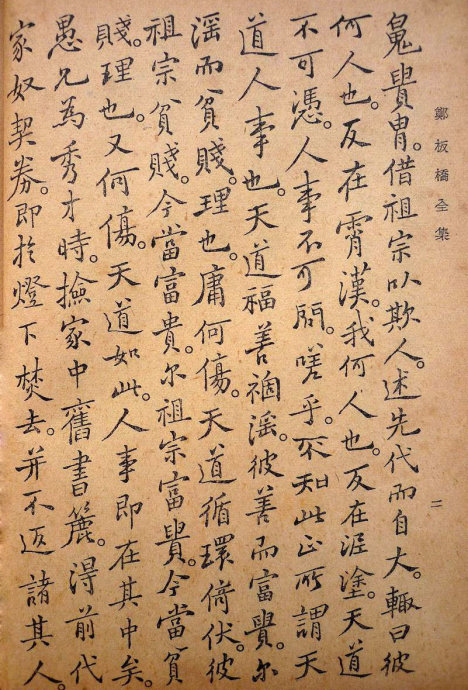 鄭板橋全集
二
鳧貴冑。借祖宗以欺人。述先代而自大。輒曰彼
何人也。反在霄漢。我何人也。反在泥塗。天道
不可憑。人事不可問。嗟乎。不知此正所謂天
道人事也。天道福善禍淫。彼善而富貴。尔
淫而貧賤。理也。庸何傷。天道循環倚伏。彼
祖宗貧賤。今當富貴。尔祖宗富貴。今當貧
賤。理也。又何傷。天道如此。人事即在其中矣。
愚兄為秀才時。撿家中舊書簏。得前代
家奴契券。即於燈下焚去。并不返諸其人。